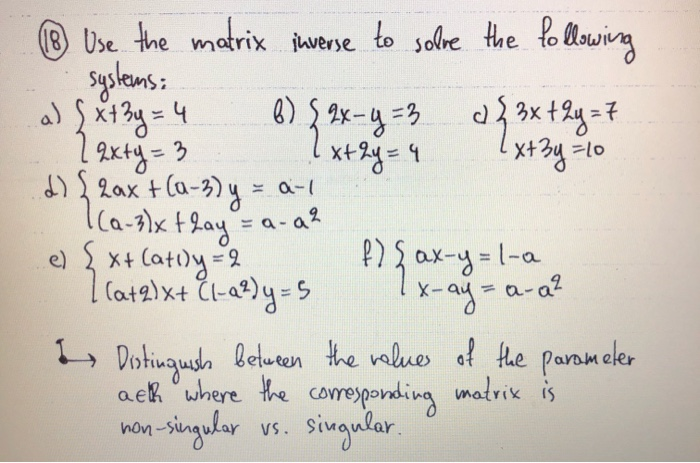 (18) Use the matrix inverse to solve the following
systems:
a) { x+3y = 4 b) { 2x-y = 3 c) { 3x+2y = 7
2x+y = 3 x+2y = 4 x+3y = 10
d) { 2ax + (a-3)y = a-1
(a-3)x + 2ay = a-a²
e) { x+(a+1)y = 2 f) { ax-y = 1-a
(a+2)x+(1-a²)y = 5 x-ay = a-a²
↳ Distinguish between the values of the parameter
a∈ℝ where the corresponding matrix is
non-singular vs. singular.